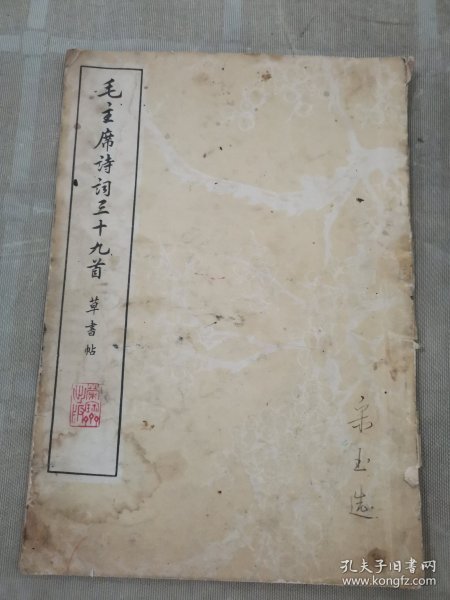 毛主席诗词三十九首
草书帖
宋玉造
孔夫子旧书网
www.kongfz.com